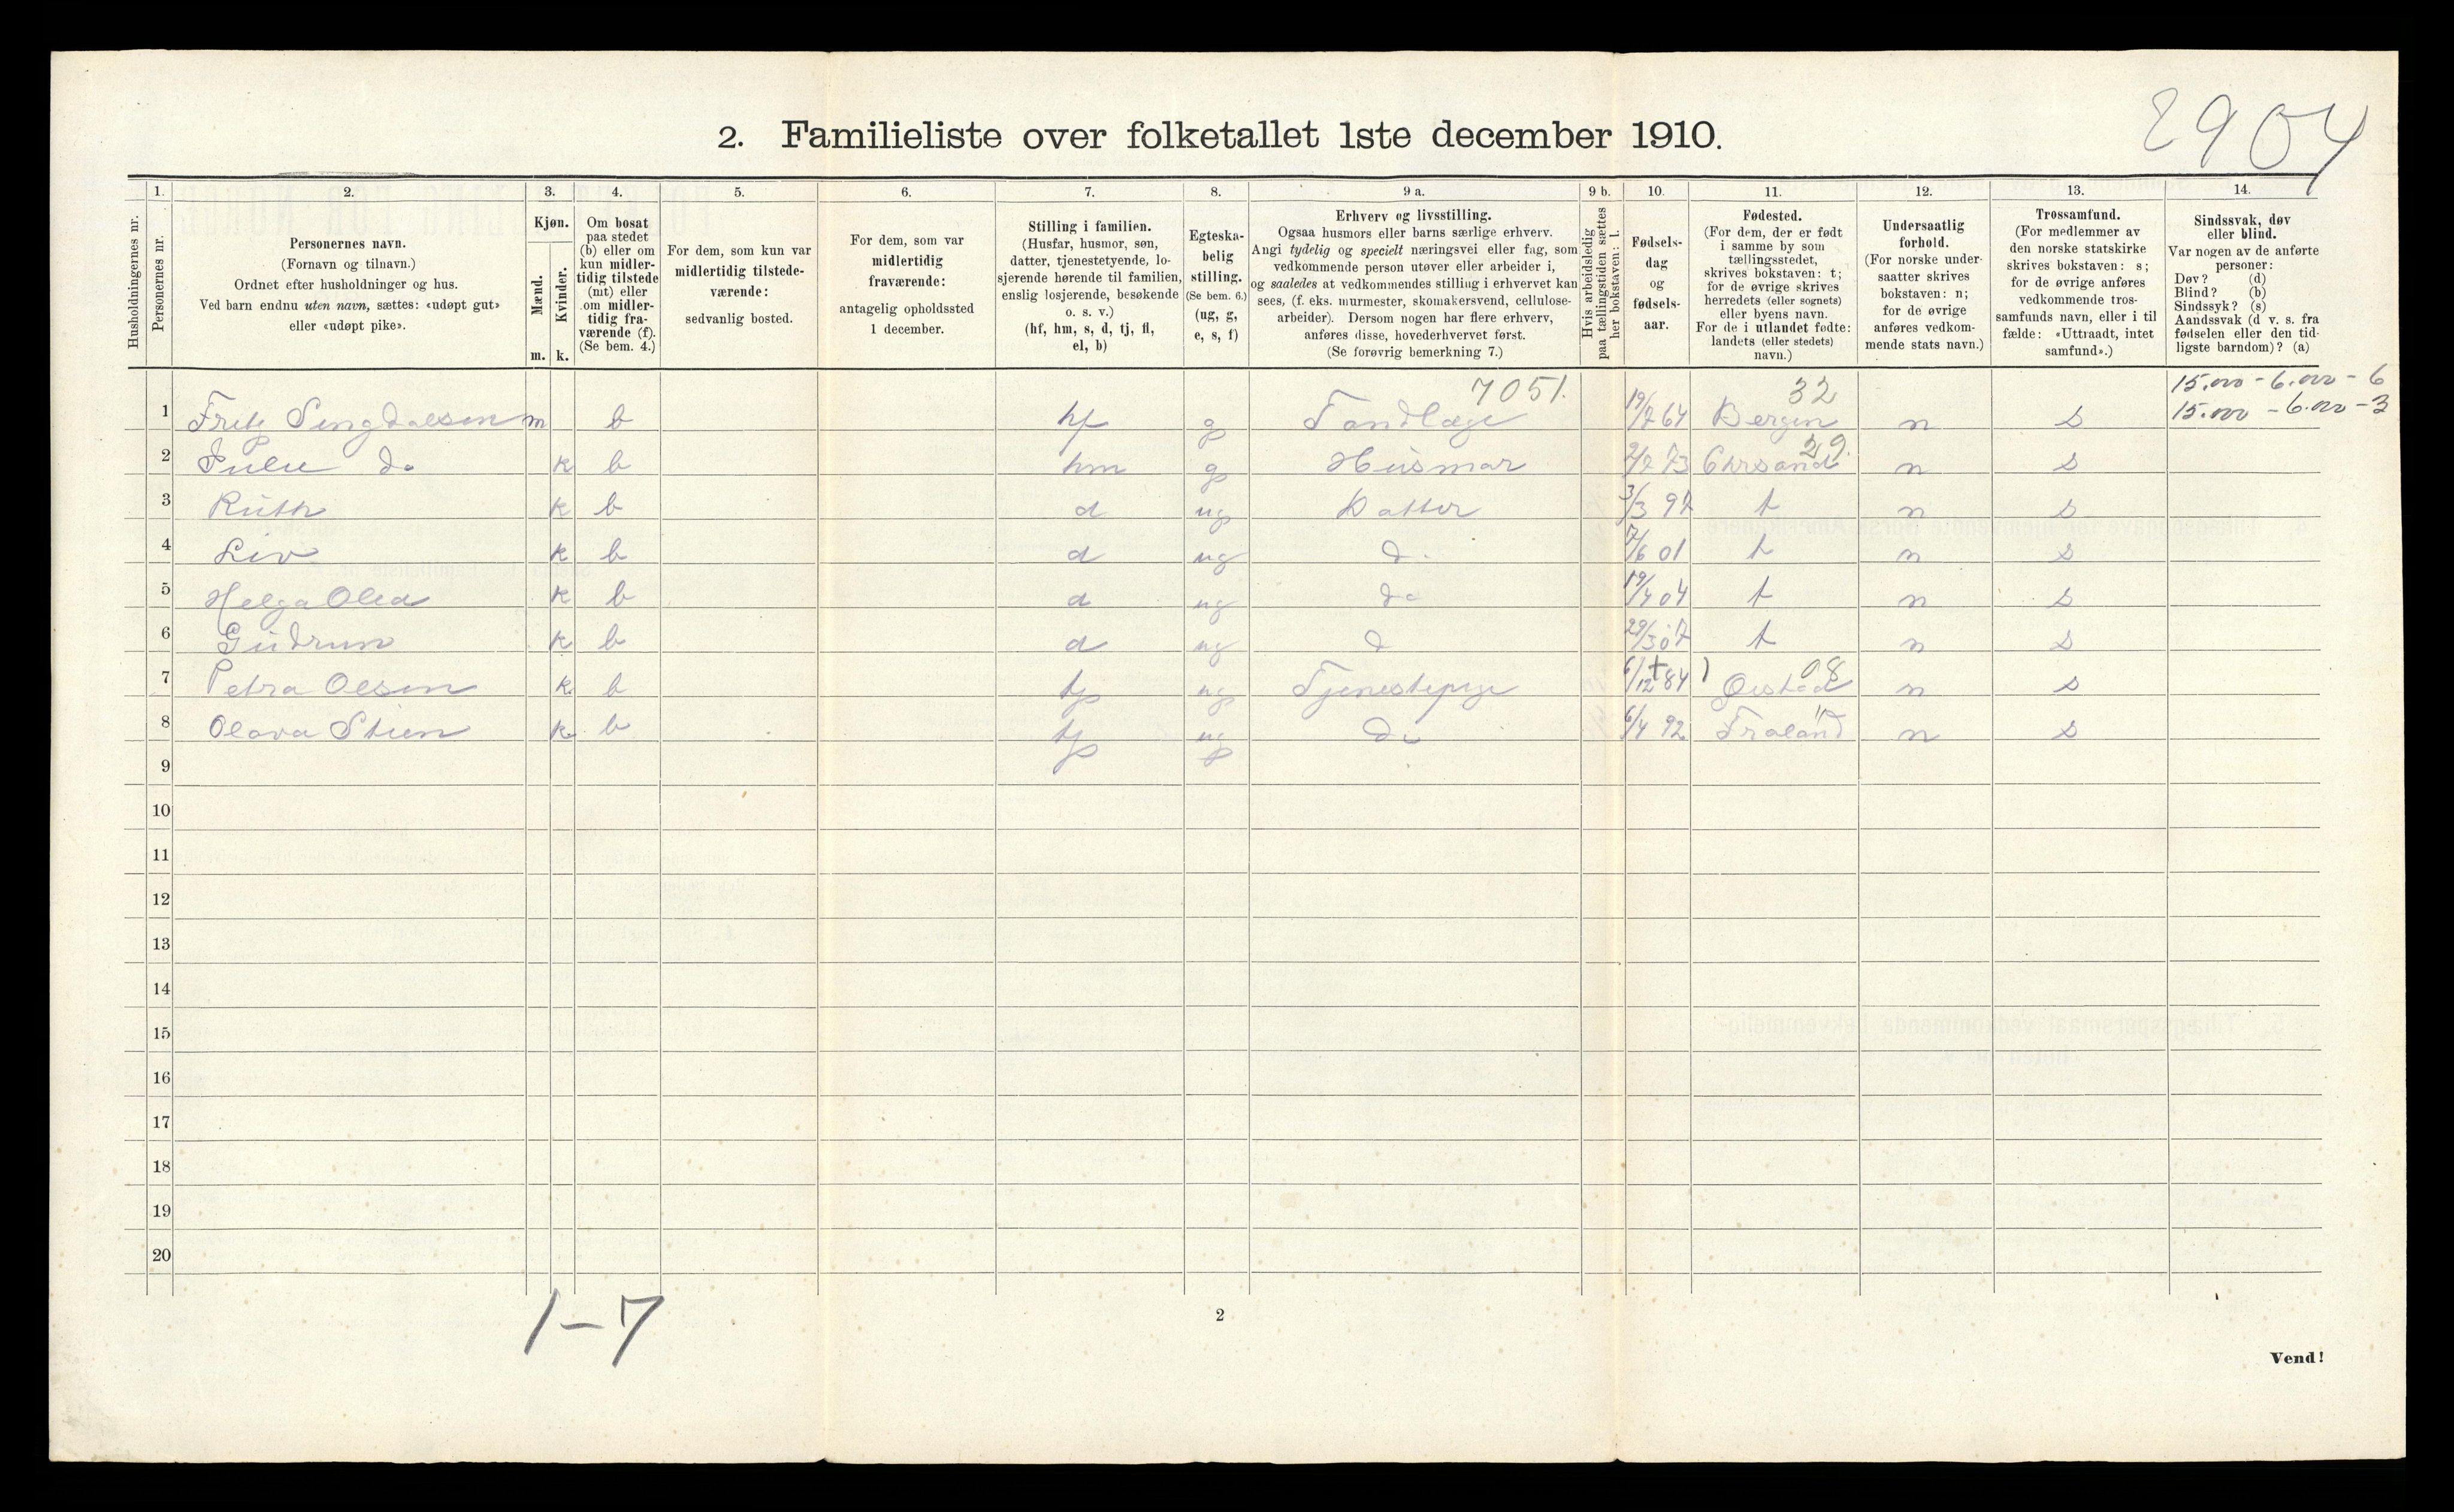 2904
2. Familieliste over folketallet 1ste december 1910.
1. 2. 3. 4. 5. 6. 7. 8. 9 a. 9 b. 10. 11. 12. 13. 14.
Husholdningernes nr.
Personernes nr.
Personernes navn.
(Fornavn og tilnavn.)
Ordnet efter husholdninger og hus.
Ved barn endnu uten navn, sættes: «udøpt gut»
eller «udøpt pike».
Kjøn.
Mænd.
Kvinder.
m. k.
Om bosat
paa stedet
(b) eller om
kun midler-
tidig tilstede
(mt) eller
om midler-
tidig fra-
værende (f).
(Se bem. 4.)
For dem, som kun var
midlertidig tilstede-
værende:
sedvanlig bosted.
For dem, som var
midlertidig
fraværende:
antagelig opholdssted
1 december.
Stilling i familien.
(Husfar, husmor, søn,
datter, tjenestetyende, lo-
sjerende hørende til familien,
enslig losjerende, besøkende
o. s. v.)
(hf, hm, s, d, tj, fl,
el, b)
Egteska-
belig
stilling.
(Se bem. 6.)
(ug, g,
e, s, f)
Erhverv og livsstilling.
Ogsaa husmors eller barns særlige erhverv.
Angi tydelig og specielt næringsvei eller fag, som
vedkommende person utøver eller arbeider i,
og saaledes at vedkommendes stilling i erhvervet kan
sees, (f. eks. murmester, skomakersvend, cellulose-
arbeider). Dersom nogen har flere erhverv,
anføres disse, hovederhvervet først.
(Se forøvrig bemerkning 7.)
Hvis arbeidsledig
paa tællingstiden sættes
her bokstaven: l.
Fødsels-
dag
og
fødsels-
aar.
Fødested.
(For dem, der er født
i samme by som
tællingsstedet,
skrives bokstaven: t;
for de øvrige skrives
herredets (eller sognets)
eller byens navn.
For de i utlandet fødte:
landets (eller stedets)
navn.)
Undersaatlig
forhold.
(For norske under-
saatter skrives
bokstaven: n;
for de øvrige
anføres vedkom-
mende stats navn.)
Trossamfund.
(For medlemmer av
den norske statskirke
skrives bokstaven: s;
for de øvrige anføres
vedkommende tros-
samfunds navn, eller i til
fælde: «Uttraadt, intet
samfund».)
Sindssvak, døv
eller blind.
Var nogen av de anførte
personer:
Døv? (d)
Blind? (b)
Sindssyk? (s)
Aandssvak (d v. s. fra
fødselen eller den tid-
ligste barndom)? (a)
7051. 32 15.000 - 6.000 - 6
1 m b hf g Tandlæge 19/7 64 Bergen n s 15.000 - 6.000 - 3
29.
2 do k b hm g Husmor 2/7 73 Chrsand n s
3 Ruth k b d ug Datter 3/3 97 t n s
4 Liv k b d ug d. 7/6 01 t n s
5 Helga Olea k b d ug do 19/4 04 t n s
6 Gudrun k b d ug d 29/3 07 t n s
08
7 Petra Olsen k b tj ug Tjenestepige 6/12 84 n s
8 Olava k b tj ug do 6/4 92 n s
9
10
11
12
13
14
15
16
17
18
19
20
1-7
2
Vend!